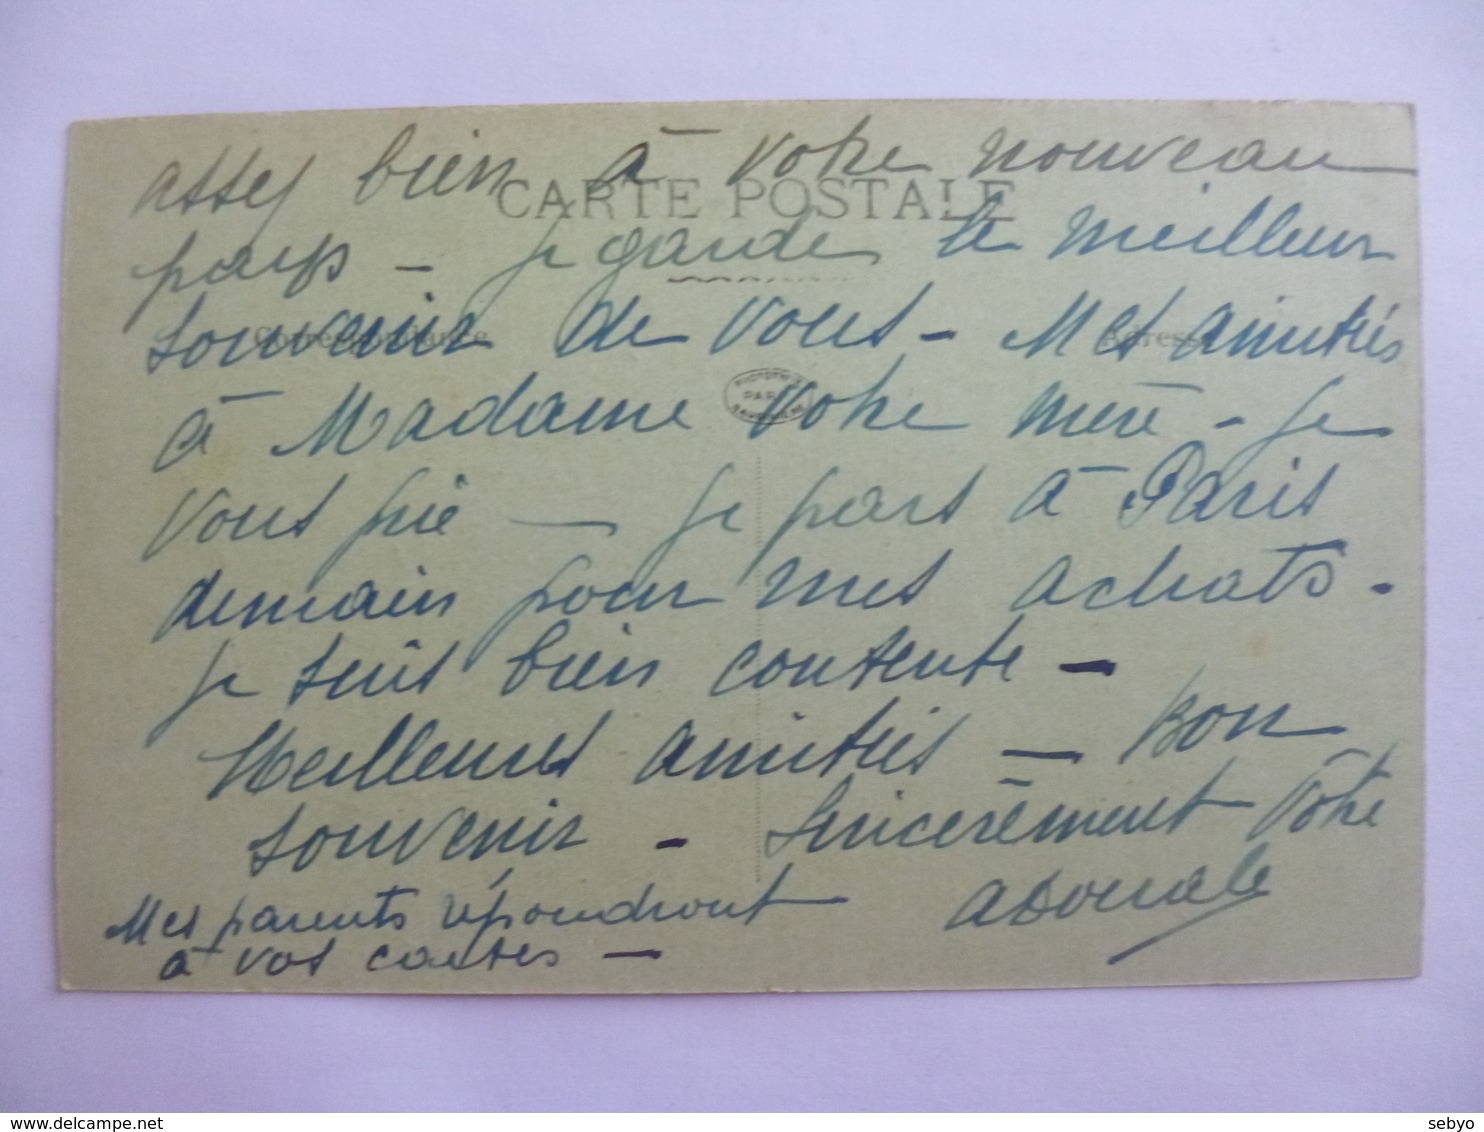 assez bien à votre nouveau
CARTE POSTALE
pays — je garde le meilleur
Correspondance
Adresse
souvenir de vous — Mes amitiés
à Madame votre mère — Je
vous prie — Je pars à Paris
demain pour mes achats —
Je suis bien contente —
Meilleures amitiés — Bon
souvenir — Sincèrement vôtre
Mes parents répondront
à vos cartes —
delcampe.net
sebyo